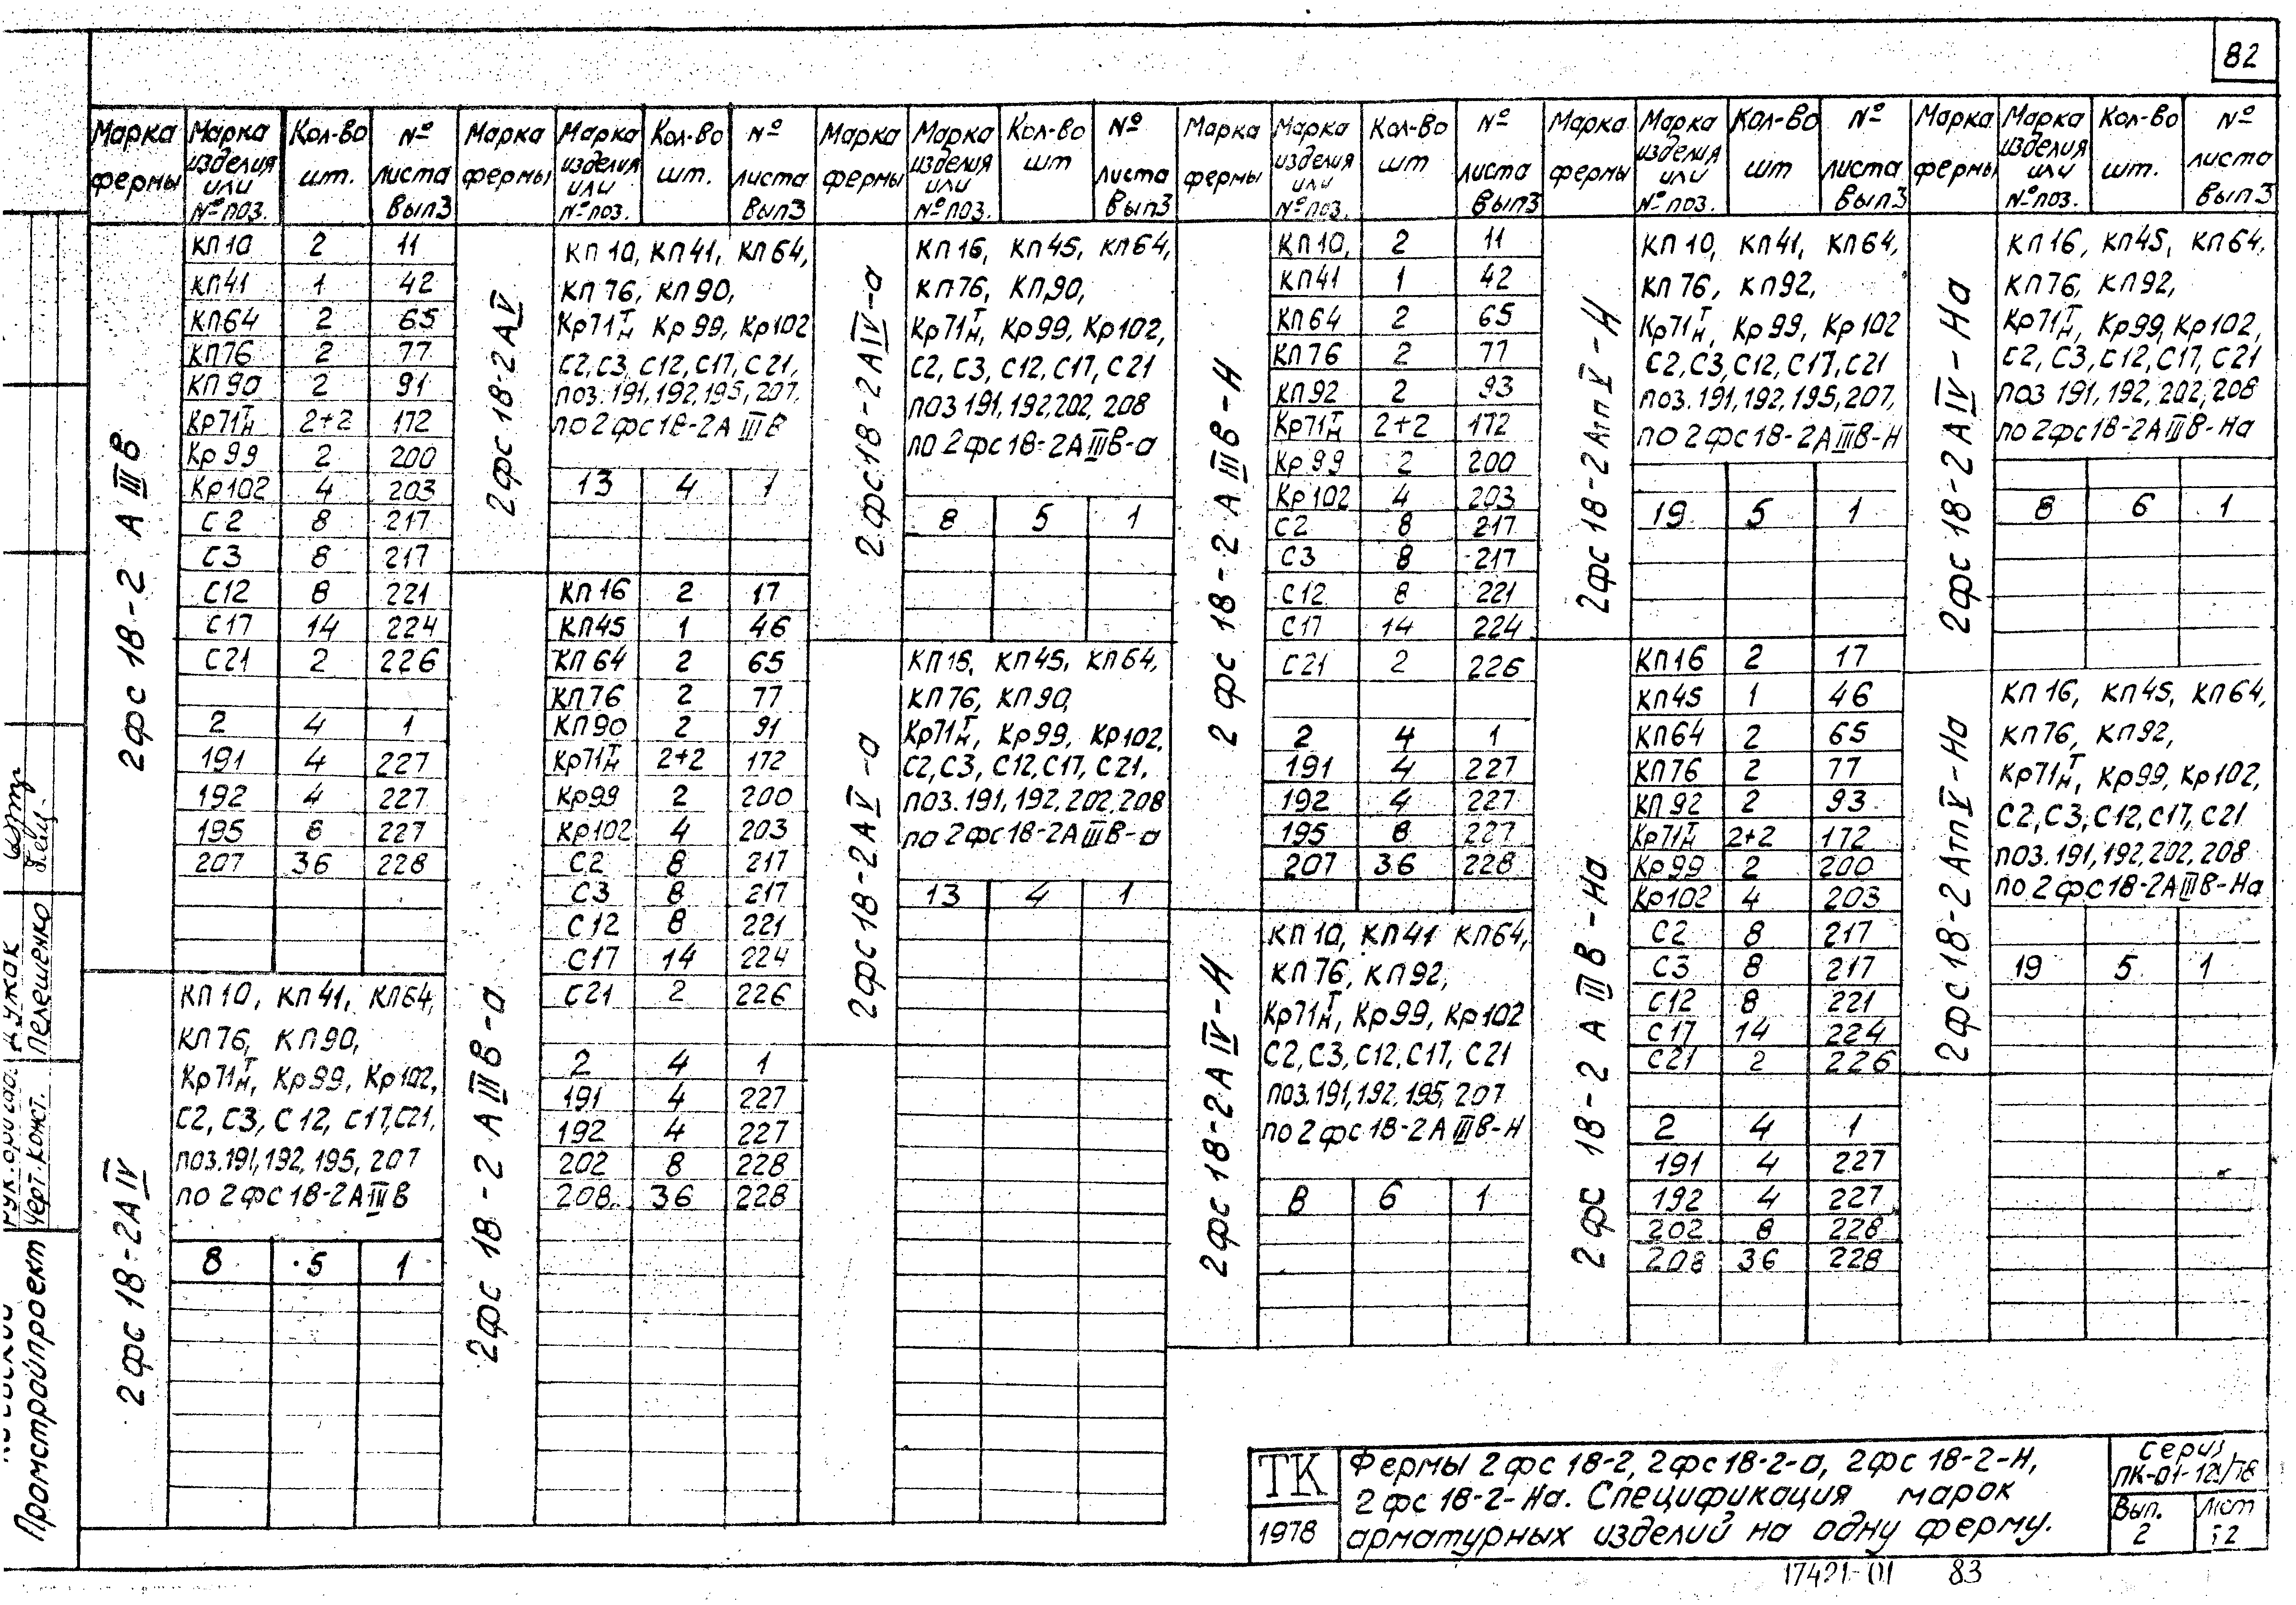 82
Марка фермы | Марка изделия или № поз. | Кол-во шт. | № листа Вып3
2фс 18-2 АIIIв
КП10 2 11
КП41 1 42
КП64 2 65
КП76 2 77
КП90 2 91
Кр71Т/Н 2+2 172
Кр99 2 200
Кр102 4 203
С2 8 217
С3 8 217
С12 8 221
С17 14 224
С21 2 226
2 4 1
191 4 227
192 4 227
195 8 227
207 36 228
2фс 18-2АIV
КП10, КП41, КП64,
КП76, КП90,
Кр71Т/Н, Кр99, Кр102,
С2, С3, С12, С17, С21,
поз.191,192,195,207
по 2фс18-2АIIIв
8 5 1
Марка фермы | Марка изделия или № поз. | Кол-во шт. | № листа Вып3
2фс 18-2АV
КП10, КП41, КП64,
КП76, КП90,
Кр71Т/Н Кр99, Кр102
С2,С3, С12, С17, С21,
поз.191,192,195,207,
по 2фс18-2АIIIв
13 4 1
2фс 18-2 АIIIв-а
КП16 2 17
КП45 1 46
КП64 2 65
КП76 2 77
КП90 2 91
Кр71Т/Н 2+2 172
Кр99 2 200
Кр102 4 203
С2 8 217
С3 8 217
С12 8 221
С17 14 224
С21 2 226
2 4 1
191 4 227
192 4 227
202 8 228
208 36 228
Марка фермы | Марка изделия или № поз. | Кол-во шт | № листа Вып3
2фс18-2АIV-а
КП16, КП45, КП64,
КП76, КП90,
Кр71Т/Н, Кр99, Кр102,
С2, С3, С12, С17, С21
поз 191,192,202,208
по 2фс18-2АIIIв-а
8 5 1
2фс18-2АV-а
КП16, КП45, КП64,
КП76, КП90,
Кр71Т/Н, Кр99, Кр102,
С2,С3, С12,С17, С21,
поз.191,192,202,208
по 2фс18-2АIIIв-а
13 4 1
Марка фермы | Марка изделия или № поз. | Кол-во шт | № листа Вып3
2фс 18-2 АIIIв-Н
КП10, 2 11
КП41 1 42
КП64 2 65
КП76 2 77
КП92 2 93
Кр71Т/Н 2+2 172
Кр99 2 200
Кр102 4 203
С2 8 217
С3 8 217
С12 8 221
С17 14 224
С21 2 226
2 4 1
191 4 227
192 4 227
195 8 227
207 36 228
2фс 18-2АIV-Н
КП10, КП41 КП64,
КП76, КП92,
Кр71Т/Н, Кр99, Кр102
С2,С3,С12,С17, С21
поз.191,192,195,207
по 2фс18-2АIIIв-Н
8 6 1
Марка фермы | Марка изделия или № поз. | Кол-во шт | № листа Вып3
2фс 18-2АтпV-Н
КП10, КП41, КП64,
КП76, КП92,
Кр71Т/Н, Кр99, Кр102
С2,С3,С12,С17,С21
поз.191,192,195,207,
по 2фс18-2АIIIв-Н
19 5 1
2фс 18-2 АIIIв-На
КП16 2 17
КП45 1 46
КП64 2 65
КП76 2 77
КП92 2 93
Кр71Т/Н 2+2 172
Кр99 2 200
Кр102 4 203
С2 8 217
С3 8 217
С12 8 221
С17 14 224
С21 2 226
2 4 1
191 4 227
192 4 227
202 8 228
208 36 228
Марка фермы | Марка изделия или № поз. | Кол-во шт. | № листа Вып3
2фс 18-2АIV-На
КП16, КП45, КП64,
КП76, КП92,
Кр71Т/Н, Кр99, Кр102,
С2, С3, С12, С17, С21
поз 191, 192, 202, 208
по 2фс18-2АIIIв-На
8 6 1
2фс 18-2АтпV-На
КП16, КП45, КП64,
КП76, КП92,
Кр71Т/Н, Кр99, Кр102,
С2,С3, С12,С17, С21
поз.191,192,202,208
по 2фс18-2АIIIв-На
19 5 1
Промстройпроект
Черт. конст. Пелешенко
ТК
1978
Фермы 2фс18-2, 2фс18-2-а, 2фс18-2-Н,
2фс18-2-На. Спецификация марок
арматурных изделий на одну ферму.
серия
ПК-01-129/78
Вып.
2
Лист
17421-01 83